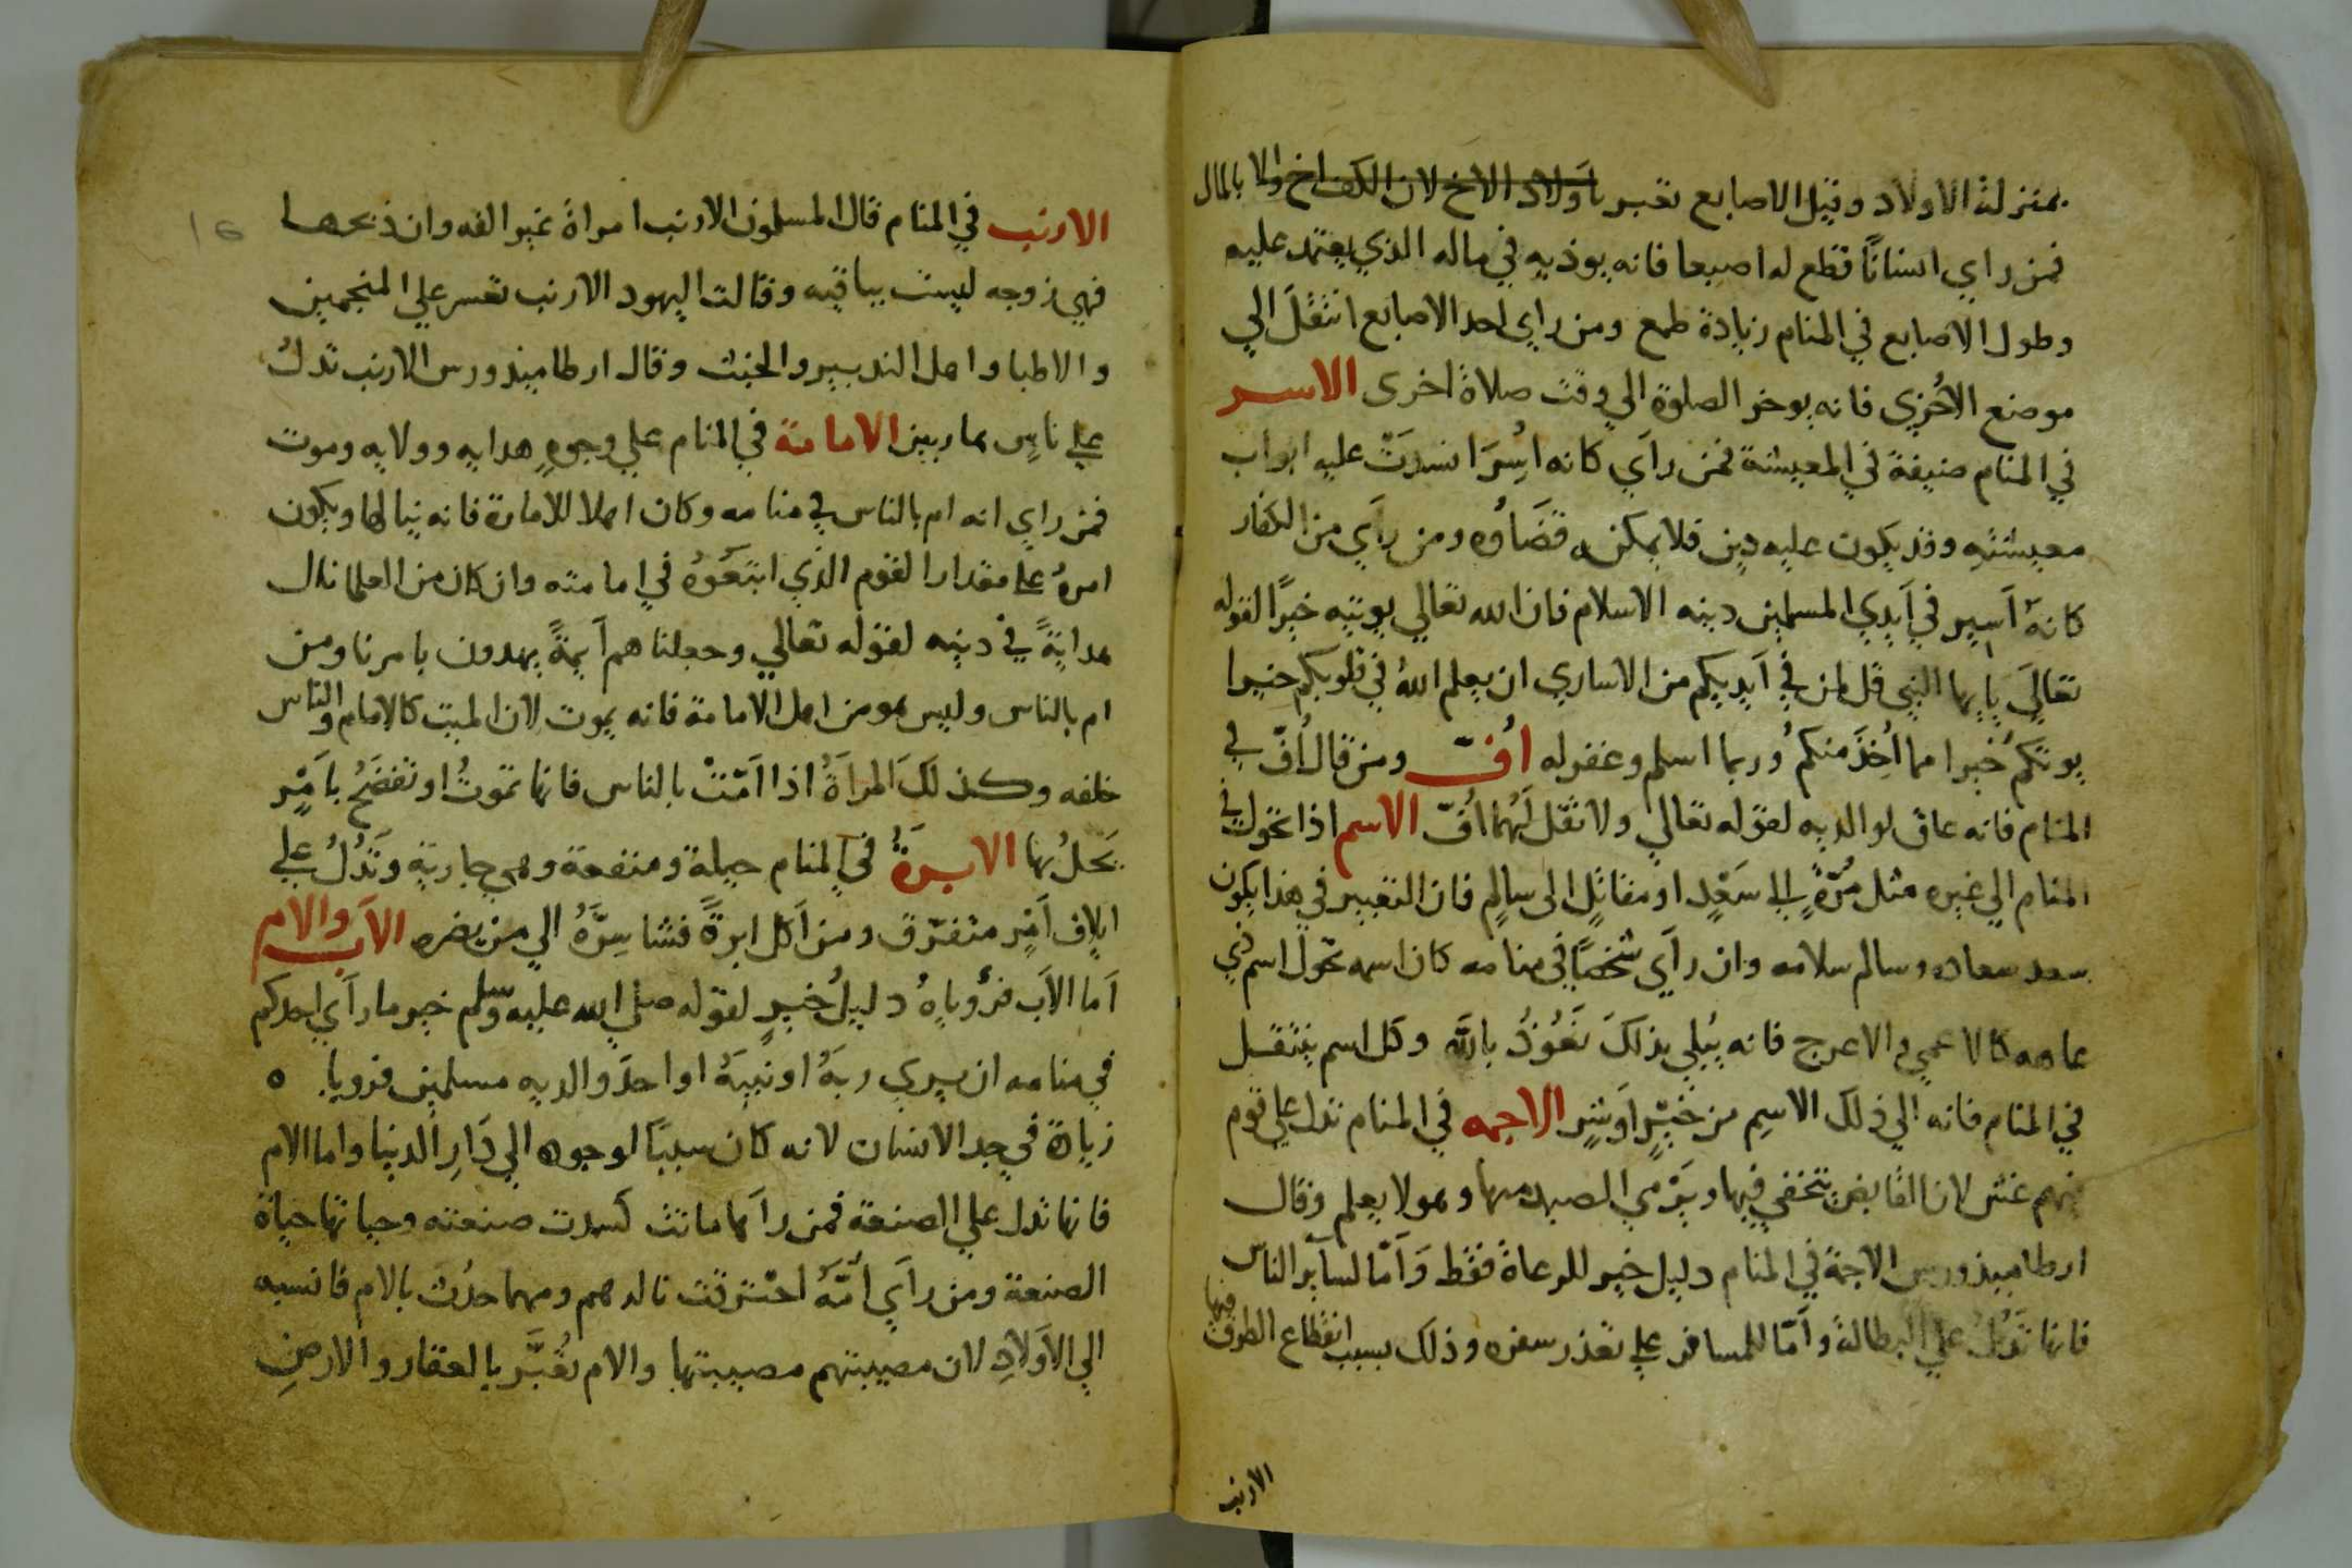 بمنزلة الاولاد وقيل الاصابع تعبر باولاد الاخ لان الكف اخ والا بالمال
فمن راي انسانًا قطع له اصبعا فانه يوذيه في ماله الذي يعتمد عليه
وطول الاصابع في المنام زيادة طمع ومن راي احد الاصابع انتقل الي
موضع الاخري فانه يوخر الصلوة الي وقت صلاة اخرى الاسر
في المنام ضيقة في المعيشة فمن رآي كانه اُسِرَ انسدت عليه ابواب
معيشته وقد يكون عليه دين فلا يمكنه قضاؤه ومن رآي من الكفار
كانهٌ اَسير في اَيدي المسلمين دينه الاسلام فان الله تعالي يوتيه خيرًا لقوله
تعالي يا ايها النبي قل لمن في اَيديكم من الاساري ان يعلم اللهُ في قلوبكم خيرا
يوتكم خيرا مما اُخِذَ منكم وربما اسلم وغفر له اُفّ ومن قال اُفّ في
المنام فانه عاق لوالديه لقوله تعالي ولا تقل لهُما اُفّ الاسم اذا تحول في
المنام الي غيره مثل مُرّةٍ الي سَعْدٍ او مقاتِلٍ الى سالِمٍ فان التعبير في هذا يكون
سعد سعاده وسالم سلامه وان رآي شخصًا في منامه كان اسمه تحول اسم ذي
عاهه كالاعمي والاعرج فانه يبلي بذلك نعوذ بالله وكل اسم ينتقل
في المنام فانه الي ذلك الاسم من خَيْرٍ اَو شرٍ الاجمه في المنام تدل علي قوم
فيهم غش لان القابض يتخفي فيها ويَرْمي الصيد منها وهو لا يعلم وقال
ارطاميذورس الاجمة في المنام دليل خير للرعاة فقط وَاَمّا لسآير الناس
فانها تَدُلّ علي البطالة واَمّا للمسافر علي تعذر سفره وذلك بسبب انقطاع الطرق فيها
الارنب
الارنب في المنام قال المسلمون الارنب امراة غير الفه وان ذبحها
فهي زوجه ليست بباقيه وقالت اليهود الارنب تفسر علي المنجمين
والاطبا واهل التدبير والخبث وقال ارطاميذورس الارنب تدل
علي ناسٍ هاربين الامامة في المنام علي وجوهٍ هدايه وولايه وموت
فمن راي انه ام بالناس في منامه وكان اهلا للامارة فانه ينالها ويكون
امرهُ علي مقدار القوم الذي اتبعوهُ في امامته وان كان من العلما نال
هدايةً في دينه لقوله تعالي وجعلناهم اَيمةً يهدون بامرنا ومن
ام بالناس وليس هو من اهل الامامة فانه يموت لان الميت كالامام والناس
خلفه وكذلكَ المراَةُ اذا اَمّتْ بالناس فانها تموتُ او تفتضحُ بامرٍ
يَحلُ بها الابرةُ في المنام حيلة ومنفعة وهي جارية وتَدُلُ علي
ايلاف اَمرٍ متفرّق ومن اَكل ابرةً فشا سِرّهُ الي من يضره الاَب والام
اَما الاَب فرُوياهُ دليلُ خيرٍ لقوله صلي الله عليه وسلم خير ما رآي احدكم
في منامه ان يري ربهُ او نبيهُ او احد والديه مسلمين فرويا ه
زيادة في جد الانسان لانه كان سببًا لوجوده الي دَارِ الدنيا واما الام
فانها تدل علي الصنعة فمن رآها ماتت كسدت صنعته وحياتها حياة
الصنعة ومن رآي اُمّهُ احترقت ناله هم ومهما حدث بالام فانسبه
الي الاَولادِ لان مصيبتهم مصيبتها والام تُعَبَّر بالعقار والارضِ